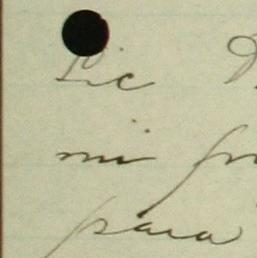 Lic
mi
para